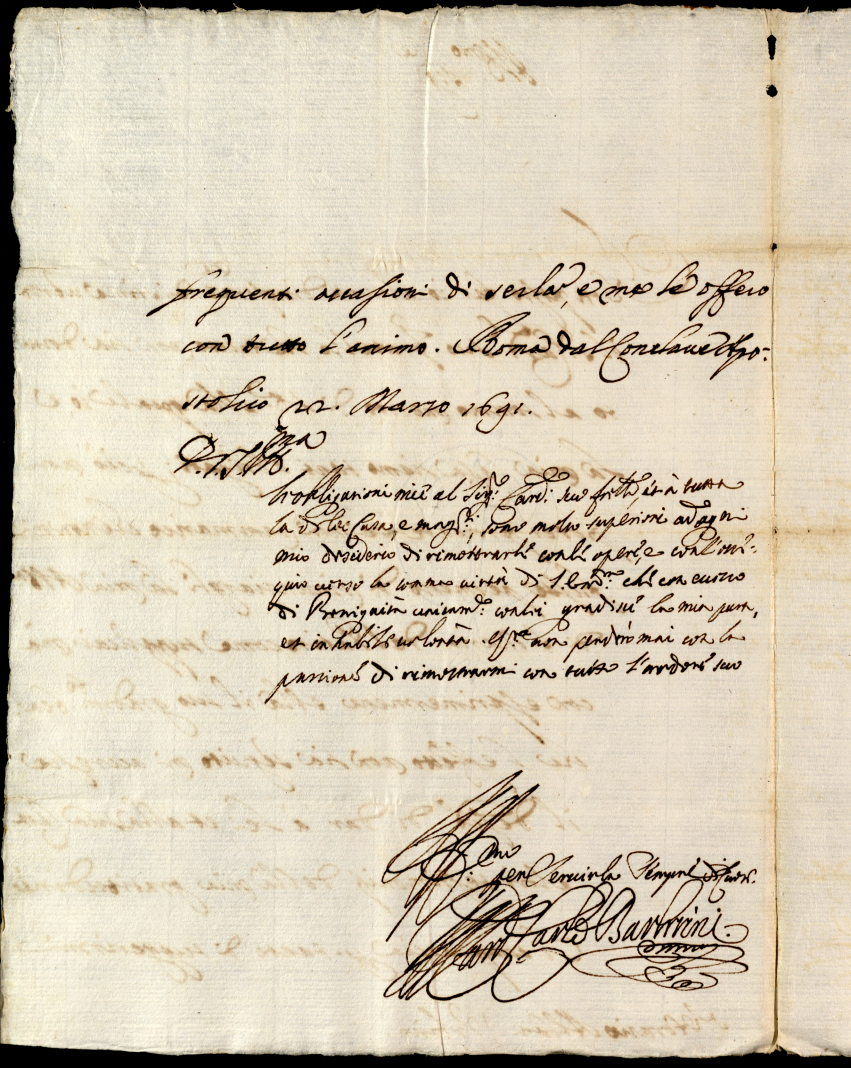 frequenti occasioni di serla, e me le offero
con tutto l'animo. Roma dal Conclave Apo=
stolico 22. Marzo 1691.
D. V. S. Ill.
L'obligationi mie al Sig.r Card.l suo frllo, et à tutta
la di lei Casa, e mag.e, sono molto superiori ad ogni
mio desiderio di rimostrarle con le opere, e con l'osse=
quio verso la somma virtù di S. Em. che con eccesso
di Benignità unicam.te con lei gradisce la mia pura,
et inhabile volontà. Ess. non perderò mai con la
passione di rimostrarmi con tutto l'ardore suo
per Servirla sempre di Cuore
Card. Carlo Barberini.